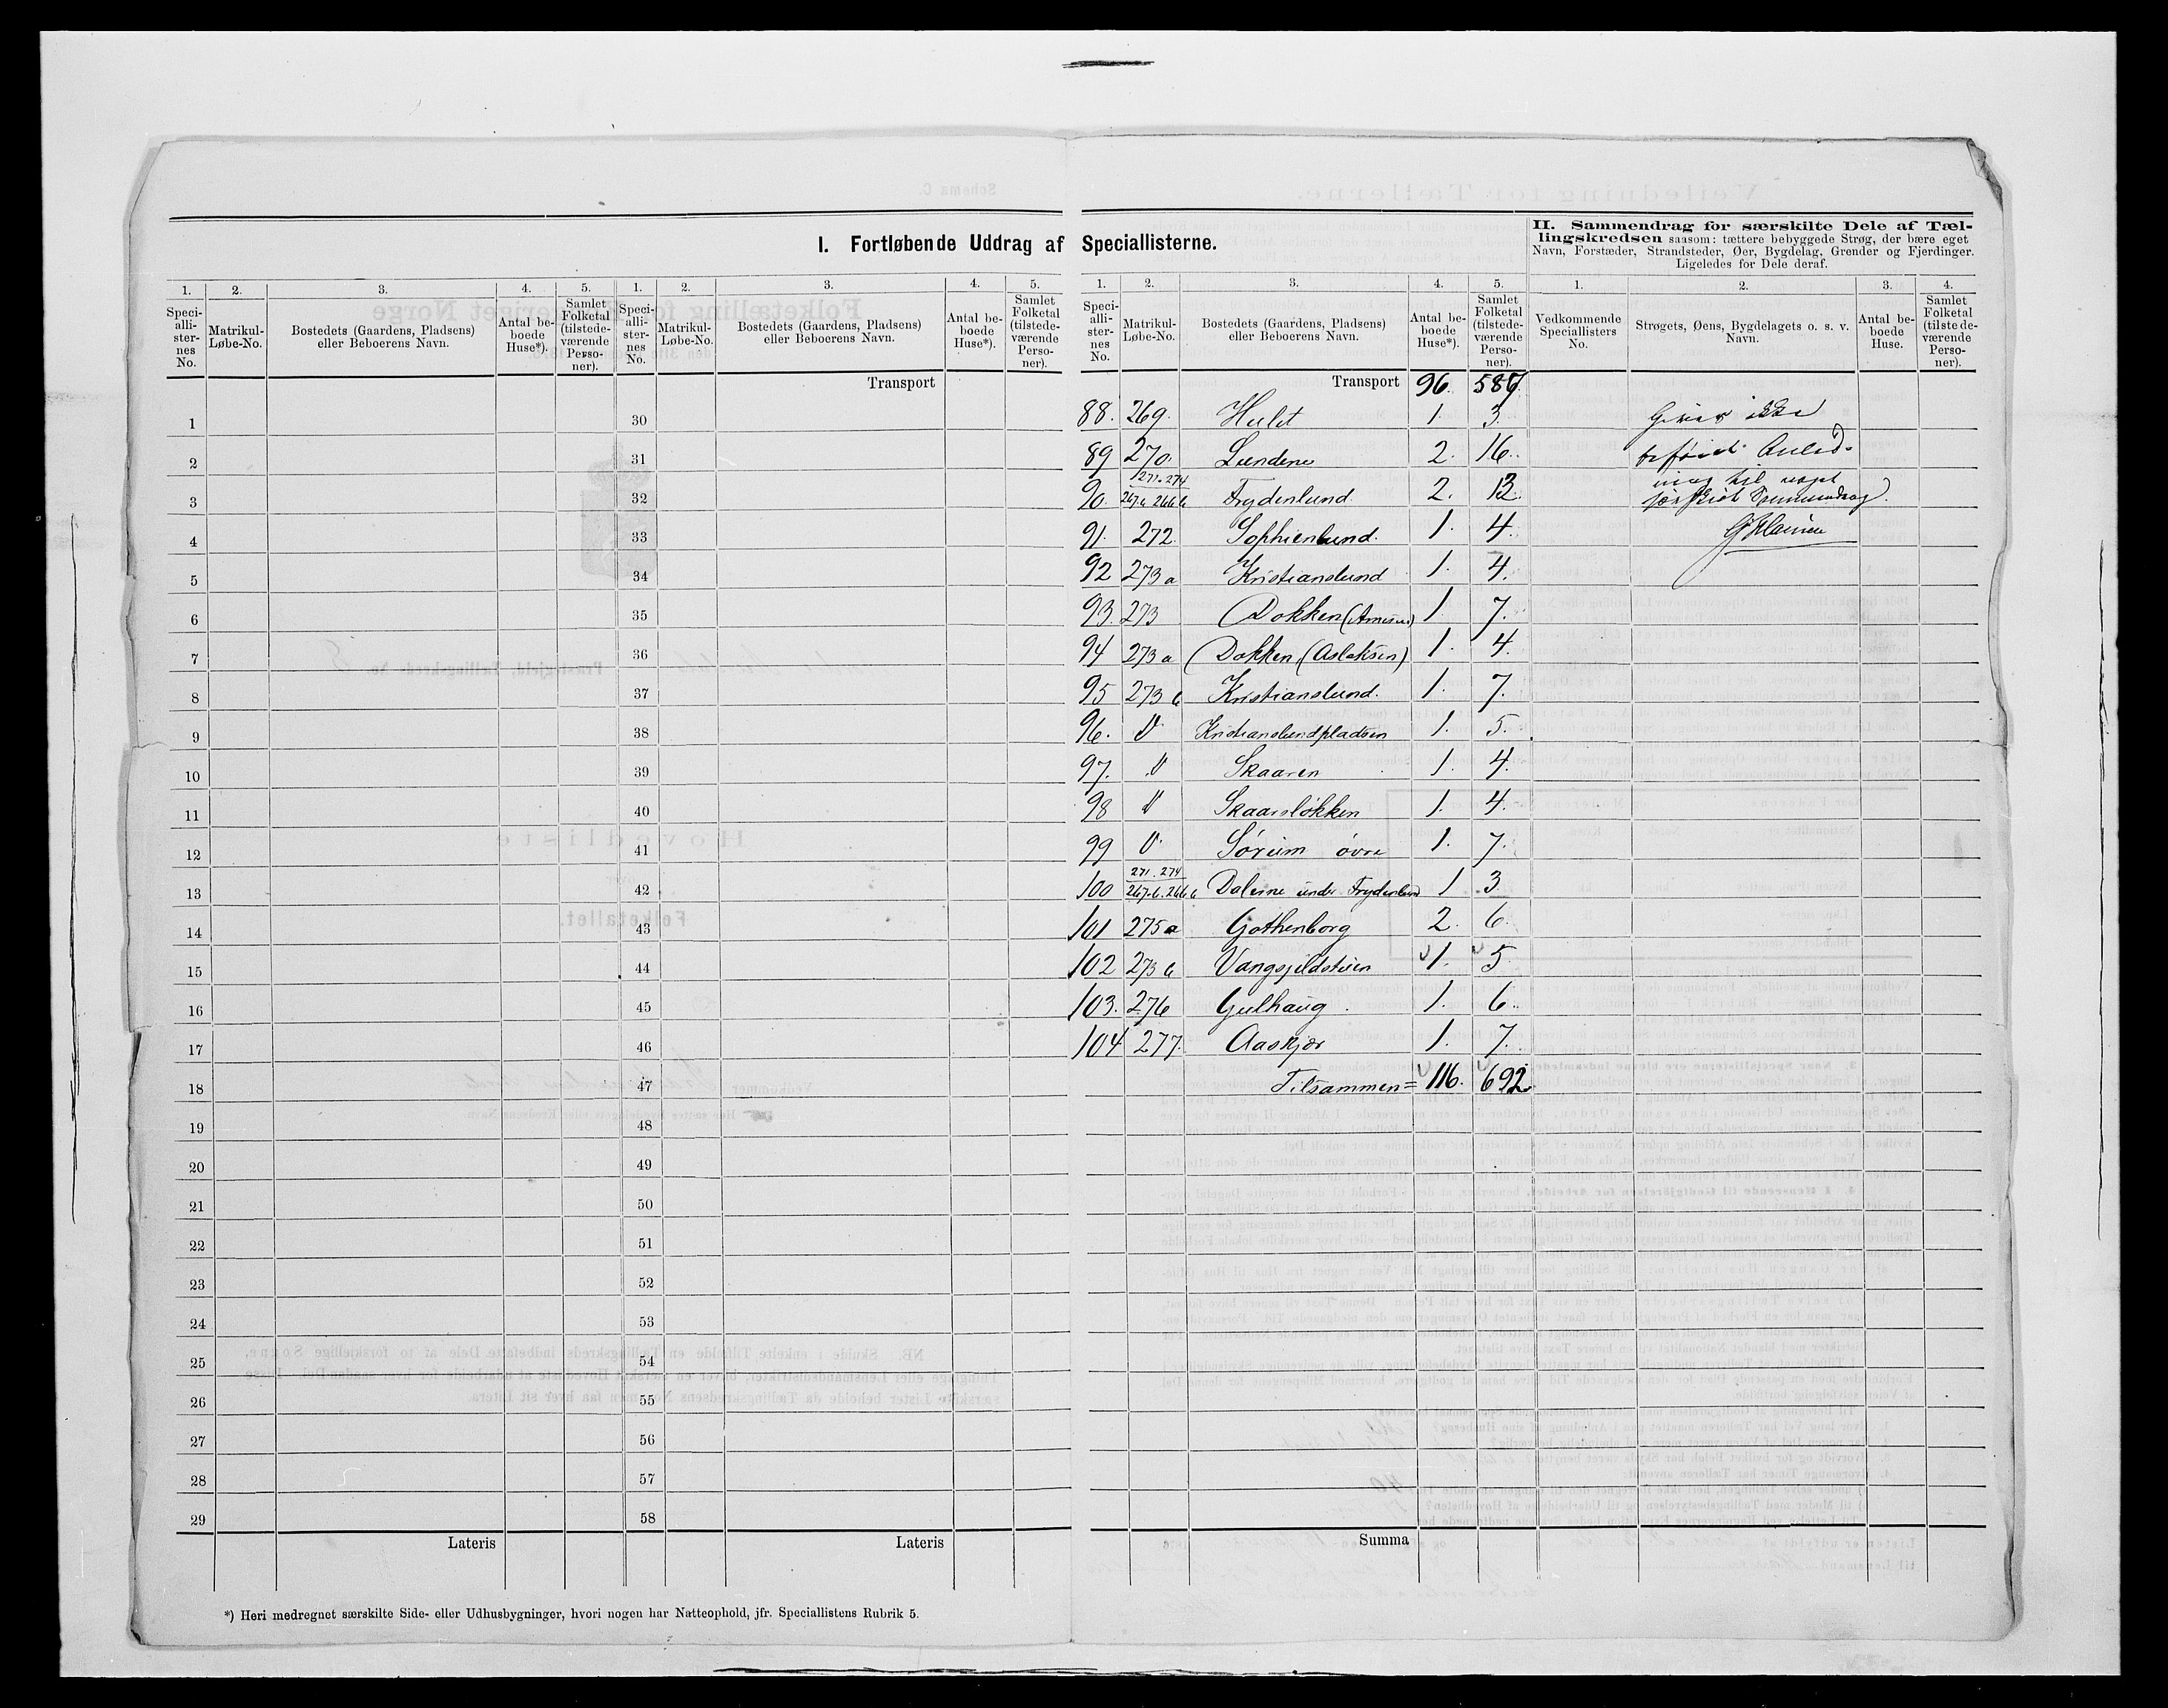 I. Fortløbende Uddrag af Speciallisterne.
II. Sammendrag for særskilte Dele af Tæl-
lingskredsen saasom: tættere bebyggede Strøg, der bære eget
Navn, Forstæder, Strandsteder, Øer, Bygdelag, Grender og Fjerdinger.
Ligeledes for Dele deraf.
1. 2. 3. 4. 5. 1. 2. 3. 4. 5. 1. 2. 3. 4. 5. 1. 2. 3. 4.
Speci-alli-ster-nes No. Matrikul-Løbe-No. Bostedets (Gaardens, Pladsens) eller Beboerens Navn. Antal be-boede Huse*). Samlet Folketal (tilstede-værende Perso-ner).
Speci-alli-ster-nes No. Matrikul-Løbe-No. Bostedets (Gaardens, Pladsens) eller Beboerens Navn. Antal be-boede Huse*). Samlet Folketal (tilstede-værende Perso-ner).
Speci-alli-ster-nes No. Matrikul-Løbe-No. Bostedets (Gaardens, Pladsens) eller Beboerens Navn. Antal be-boede Huse*). Samlet Folketal (tilstede-værende Perso-ner).
Vedkommende Speciallisters No. Strøgets, Øens, Bygdelagets o. s. v. Navn. Antal be-boede Huse. Samlet Folketal (tilstede-værende Perso-ner).
Transport Transport 96. 587.
1 30 88. 269. Hulet 1. 3. Giver ikke
2 31 89 270. Lundene 2. 16. Anled-
3 32 90. 271. 274 267 b. 266 b Frydenlund 2. 13. ning til noget særskilt Sammendrag.
4 33 91. 272. Sophienlund. 1. 4.
5 34 92 273 a Kristianslund 1. 4.
6 35 93. 273 Dokken (Arnesen) 1 7.
7 36 94 273 a Dokken (Aslaksen) 1. 4.
8 37 95 273 b Kristianslund. 1. 7.
9 38 96. " Kristianslundpladsen 1. 5.
10 39 97. " Skaaren 1. 4.
11 40 98 " Skaarsløkken 1. 4.
12 41 99 " Sørum øvre 1. 7.
13 42 100 271. 274 267 b. 266 b Dalerne under Frydenlund 1 3
14 43 101 275 a Gothenborg 2. 6.
15 44 102 273 b 1. 5
16 45 103. 276 Gulhaug 1. 6.
17 46 104 277. Aaskjær 1. 7.
18 47 Tilsammen = 116. 692.
19 48
20 49
21 50
22 51
23 52
24 53
25 54
26 55
27 56
28 57
29 58
Lateris Lateris Summa
*) Heri medregnet særskilte Side- eller Udhusbygninger, hvori nogen har Natteophold, jfr. Speciallistens Rubrik 5.